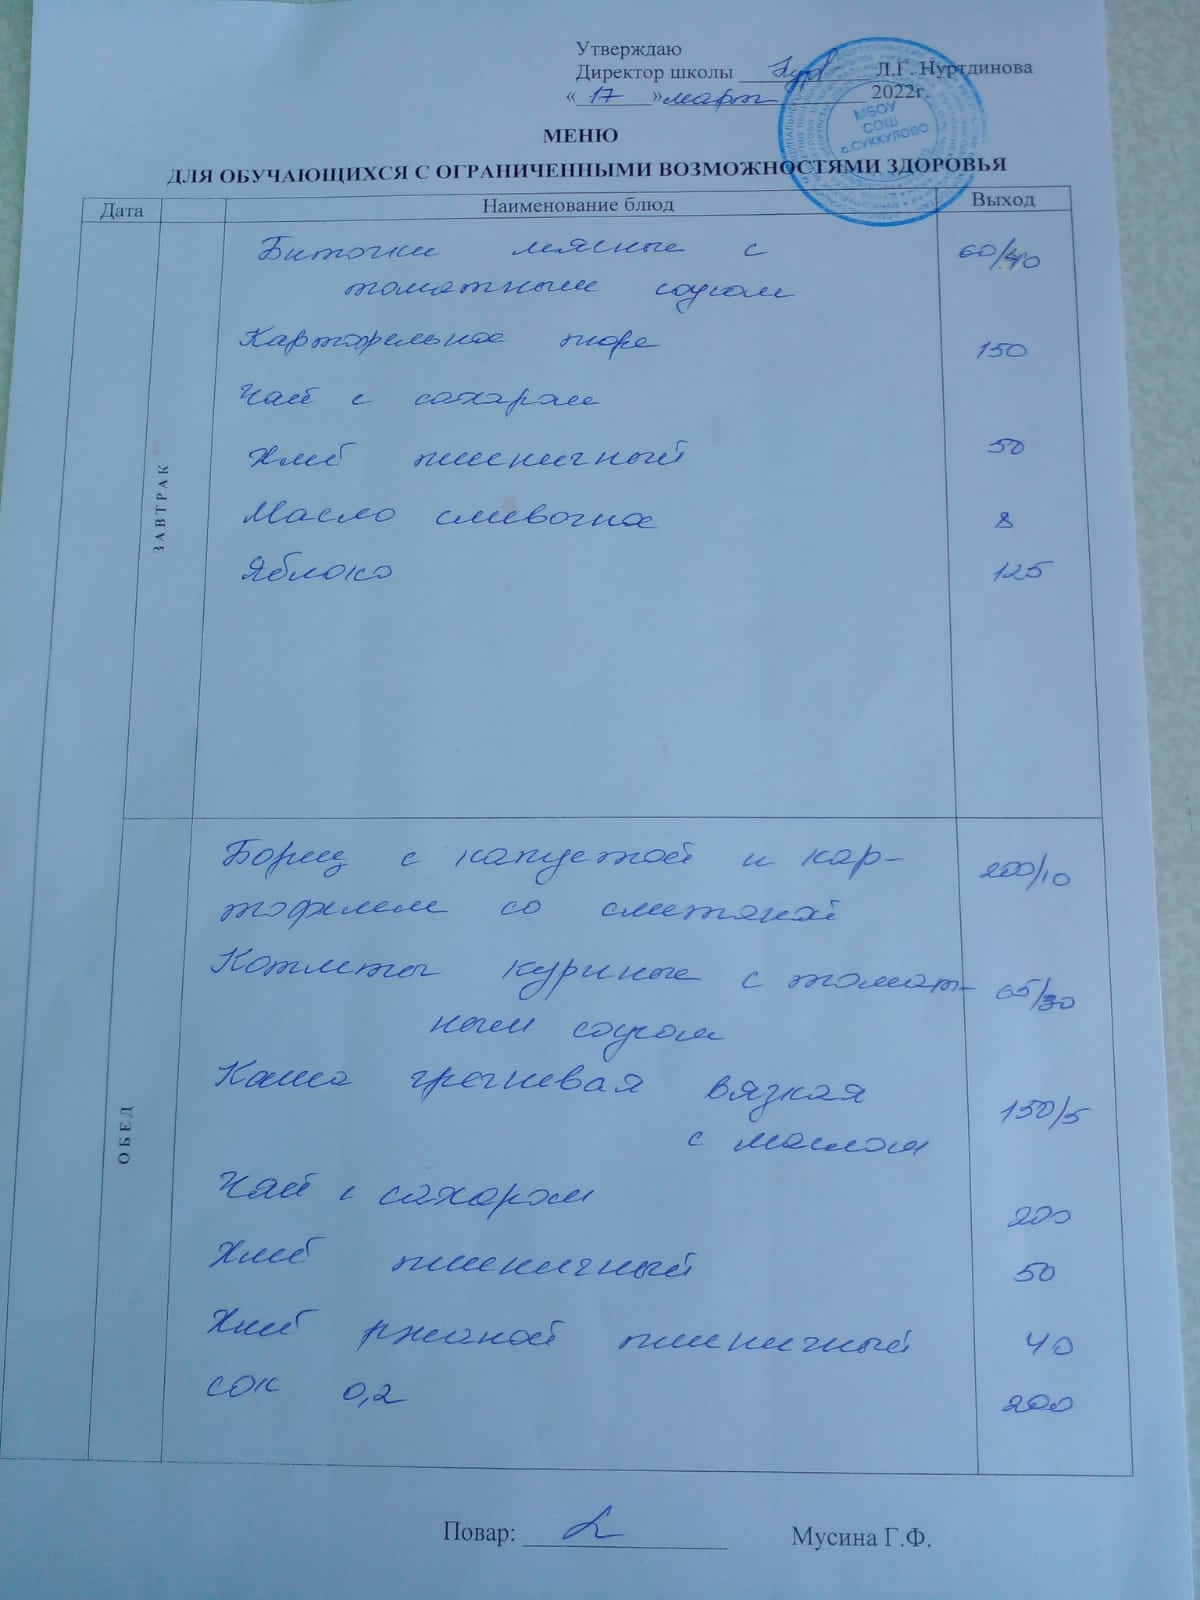 Утверждаю
Директор школы Л.Г. Нуртдинова
« 17 » март 2022г.
МБОУ
СОШ
с.СУККУЛОВО
МЕНЮ
ДЛЯ ОБУЧАЮЩИХСЯ С ОГРАНИЧЕННЫМИ ВОЗМОЖНОСТЯМИ ЗДОРОВЬЯ
Дата Наименование блюд Выход
ЗАВТРАК
Биточки мясные с 60/40
томатным соусом
Картофельное пюре 150
Чай с сахаром
Хлеб пшеничный 50
Масло сливочное 8
Яблоко 125
ОБЕД
Борщ с капустой и кар- 200/10
тофелем со сметаной
Котлеты куриные с томат- 65/30
ным соусом
Каша гречневая вязкая 150/5
с маслом
Чай с сахаром 200
Хлеб пшеничный 50
Хлеб ржаной пшеничный 40
сок 0,2 200
Повар: Мусина Г.Ф.